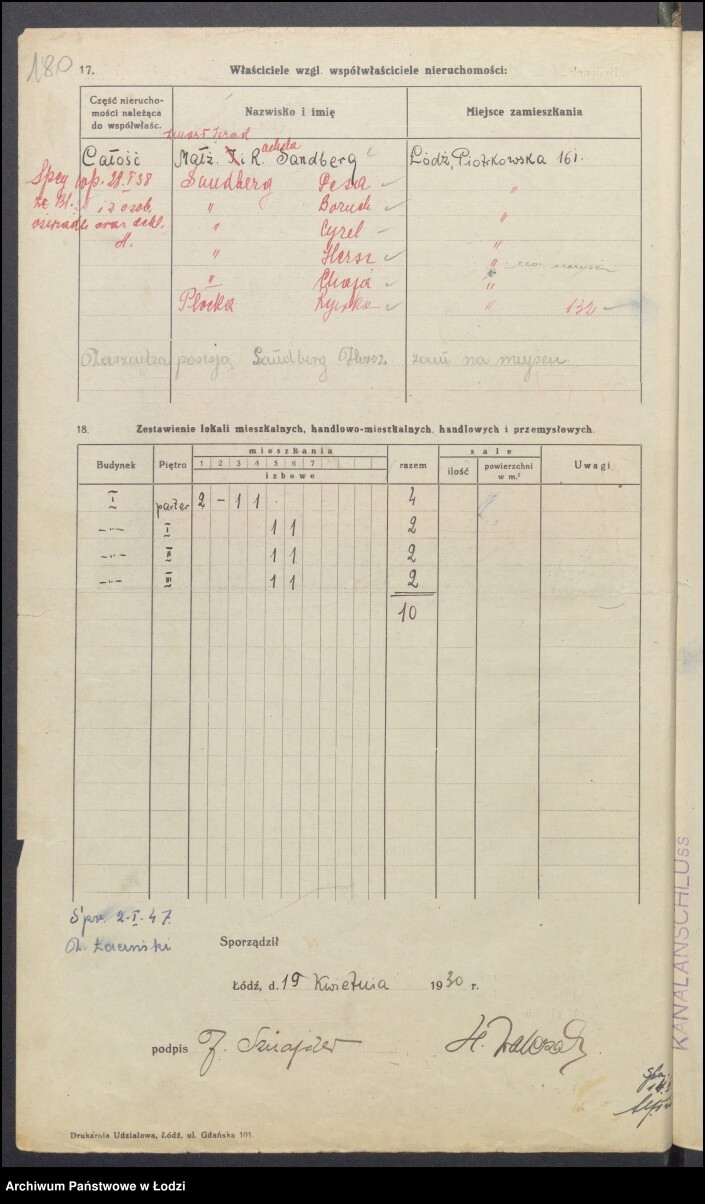 180
17. Właściciele wzgl. współwłaściciele nieruchomości:
Część nierucho-
mości należąca
do współwłaśc.
Nazwisko i imię
Miejsce zamieszkania
Całość Małż. I. i R. Sandberg Łódź, Piotrkowska 161.
28.I.38 Sandberg Pesa "
i z osob. " Boruch "
oraz dekl. " Cyrel "
" Hersz " na miejscu
" Chaja "
Płocka Rywka " 132
Zarządza posesją Sandberg Hersz zam na miejscu
18. Zestawienie lokali mieszkalnych, handlowo-mieszkalnych, handlowych i przemysłowych.
Budynek
Piętro
mieszkania
1 2 3 4 5 6 7
izbowe
razem
sale
ilość
powierzchni
w m.²
Uwagi
I parter 2 - 1 1 4
-"- I 1 1 2
-"- II 1 1 2
-"- III 1 1 2
10
Spr. 2.I.47.
Sporządził
Łódź, d. 19 Kwietnia 1930 r.
podpis
Drukarnia Udziałowa, Łódź, ul. Gdańska 101.
KANALANSCHLUSS
Archiwum Państwowe w Łodzi